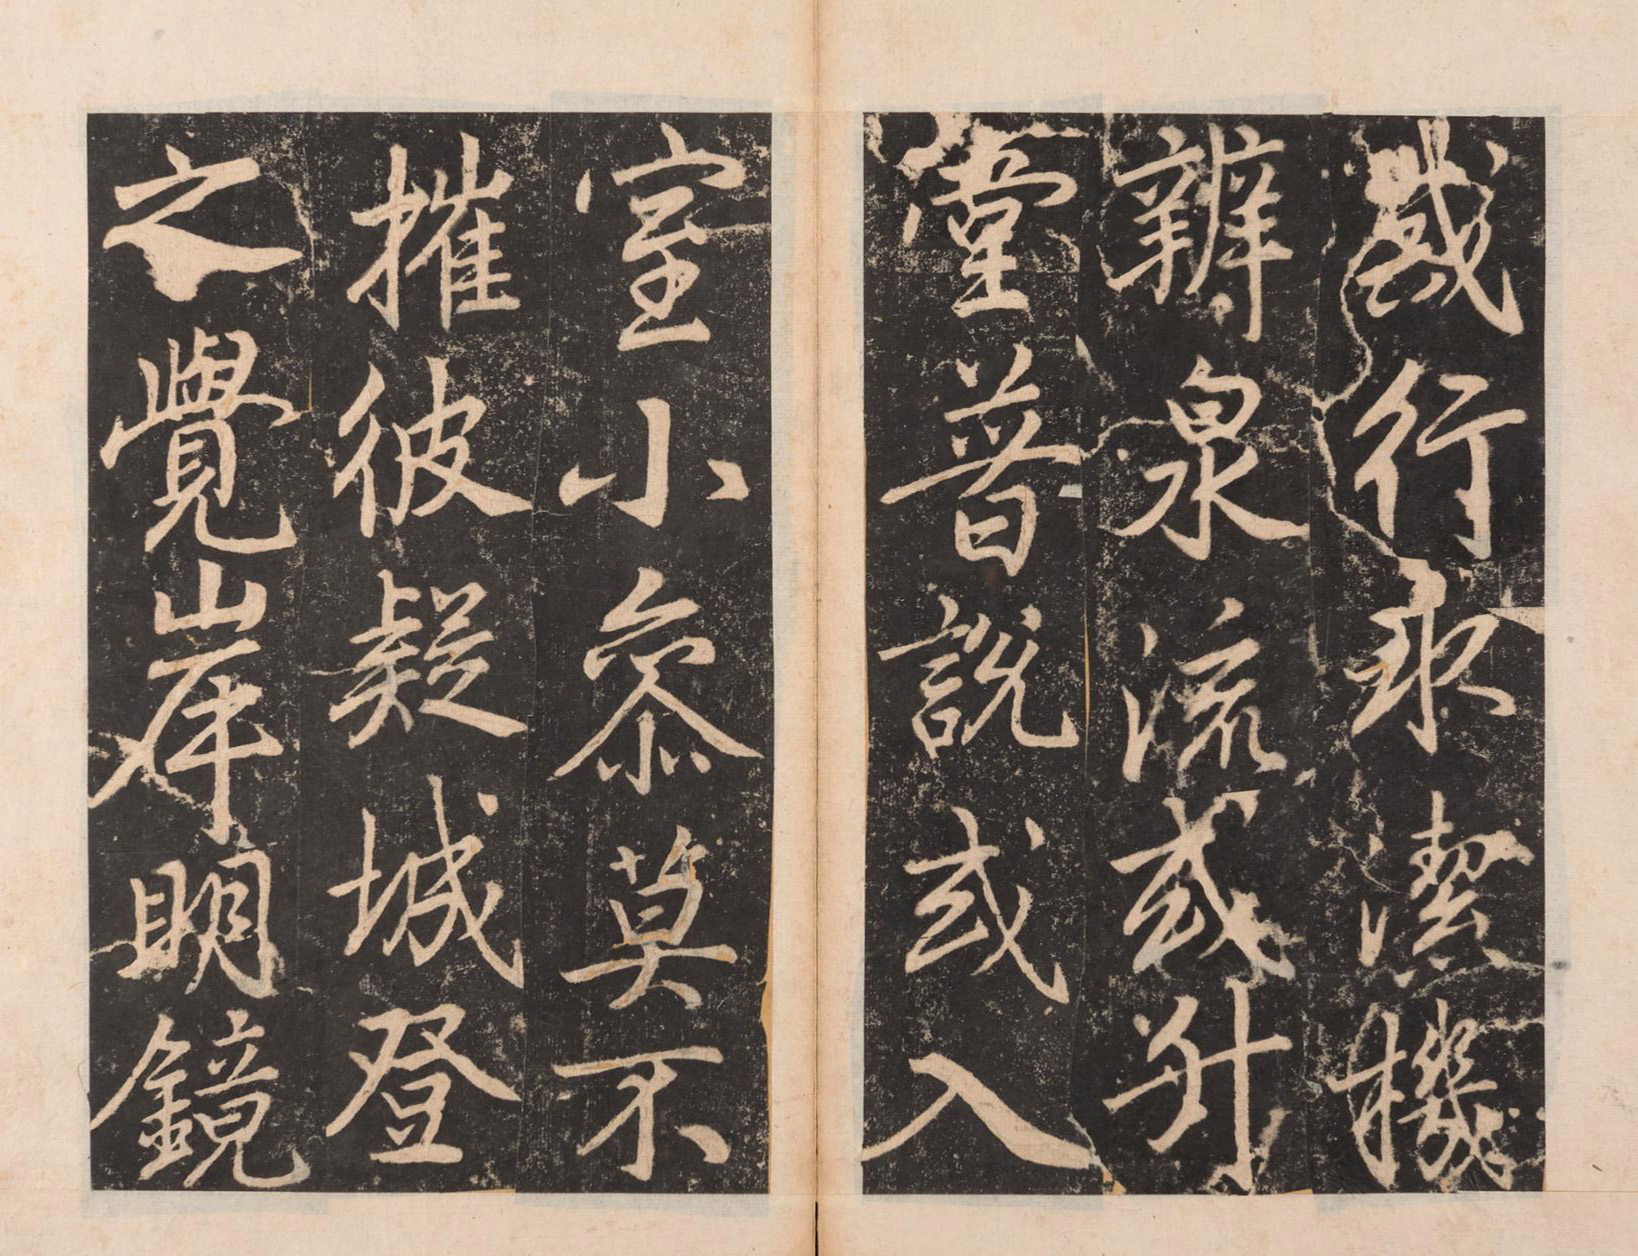 行冰潔機
辨泉流或升
堂普說或入
室小參莫不
摧彼疑城登
之覺岸明鏡